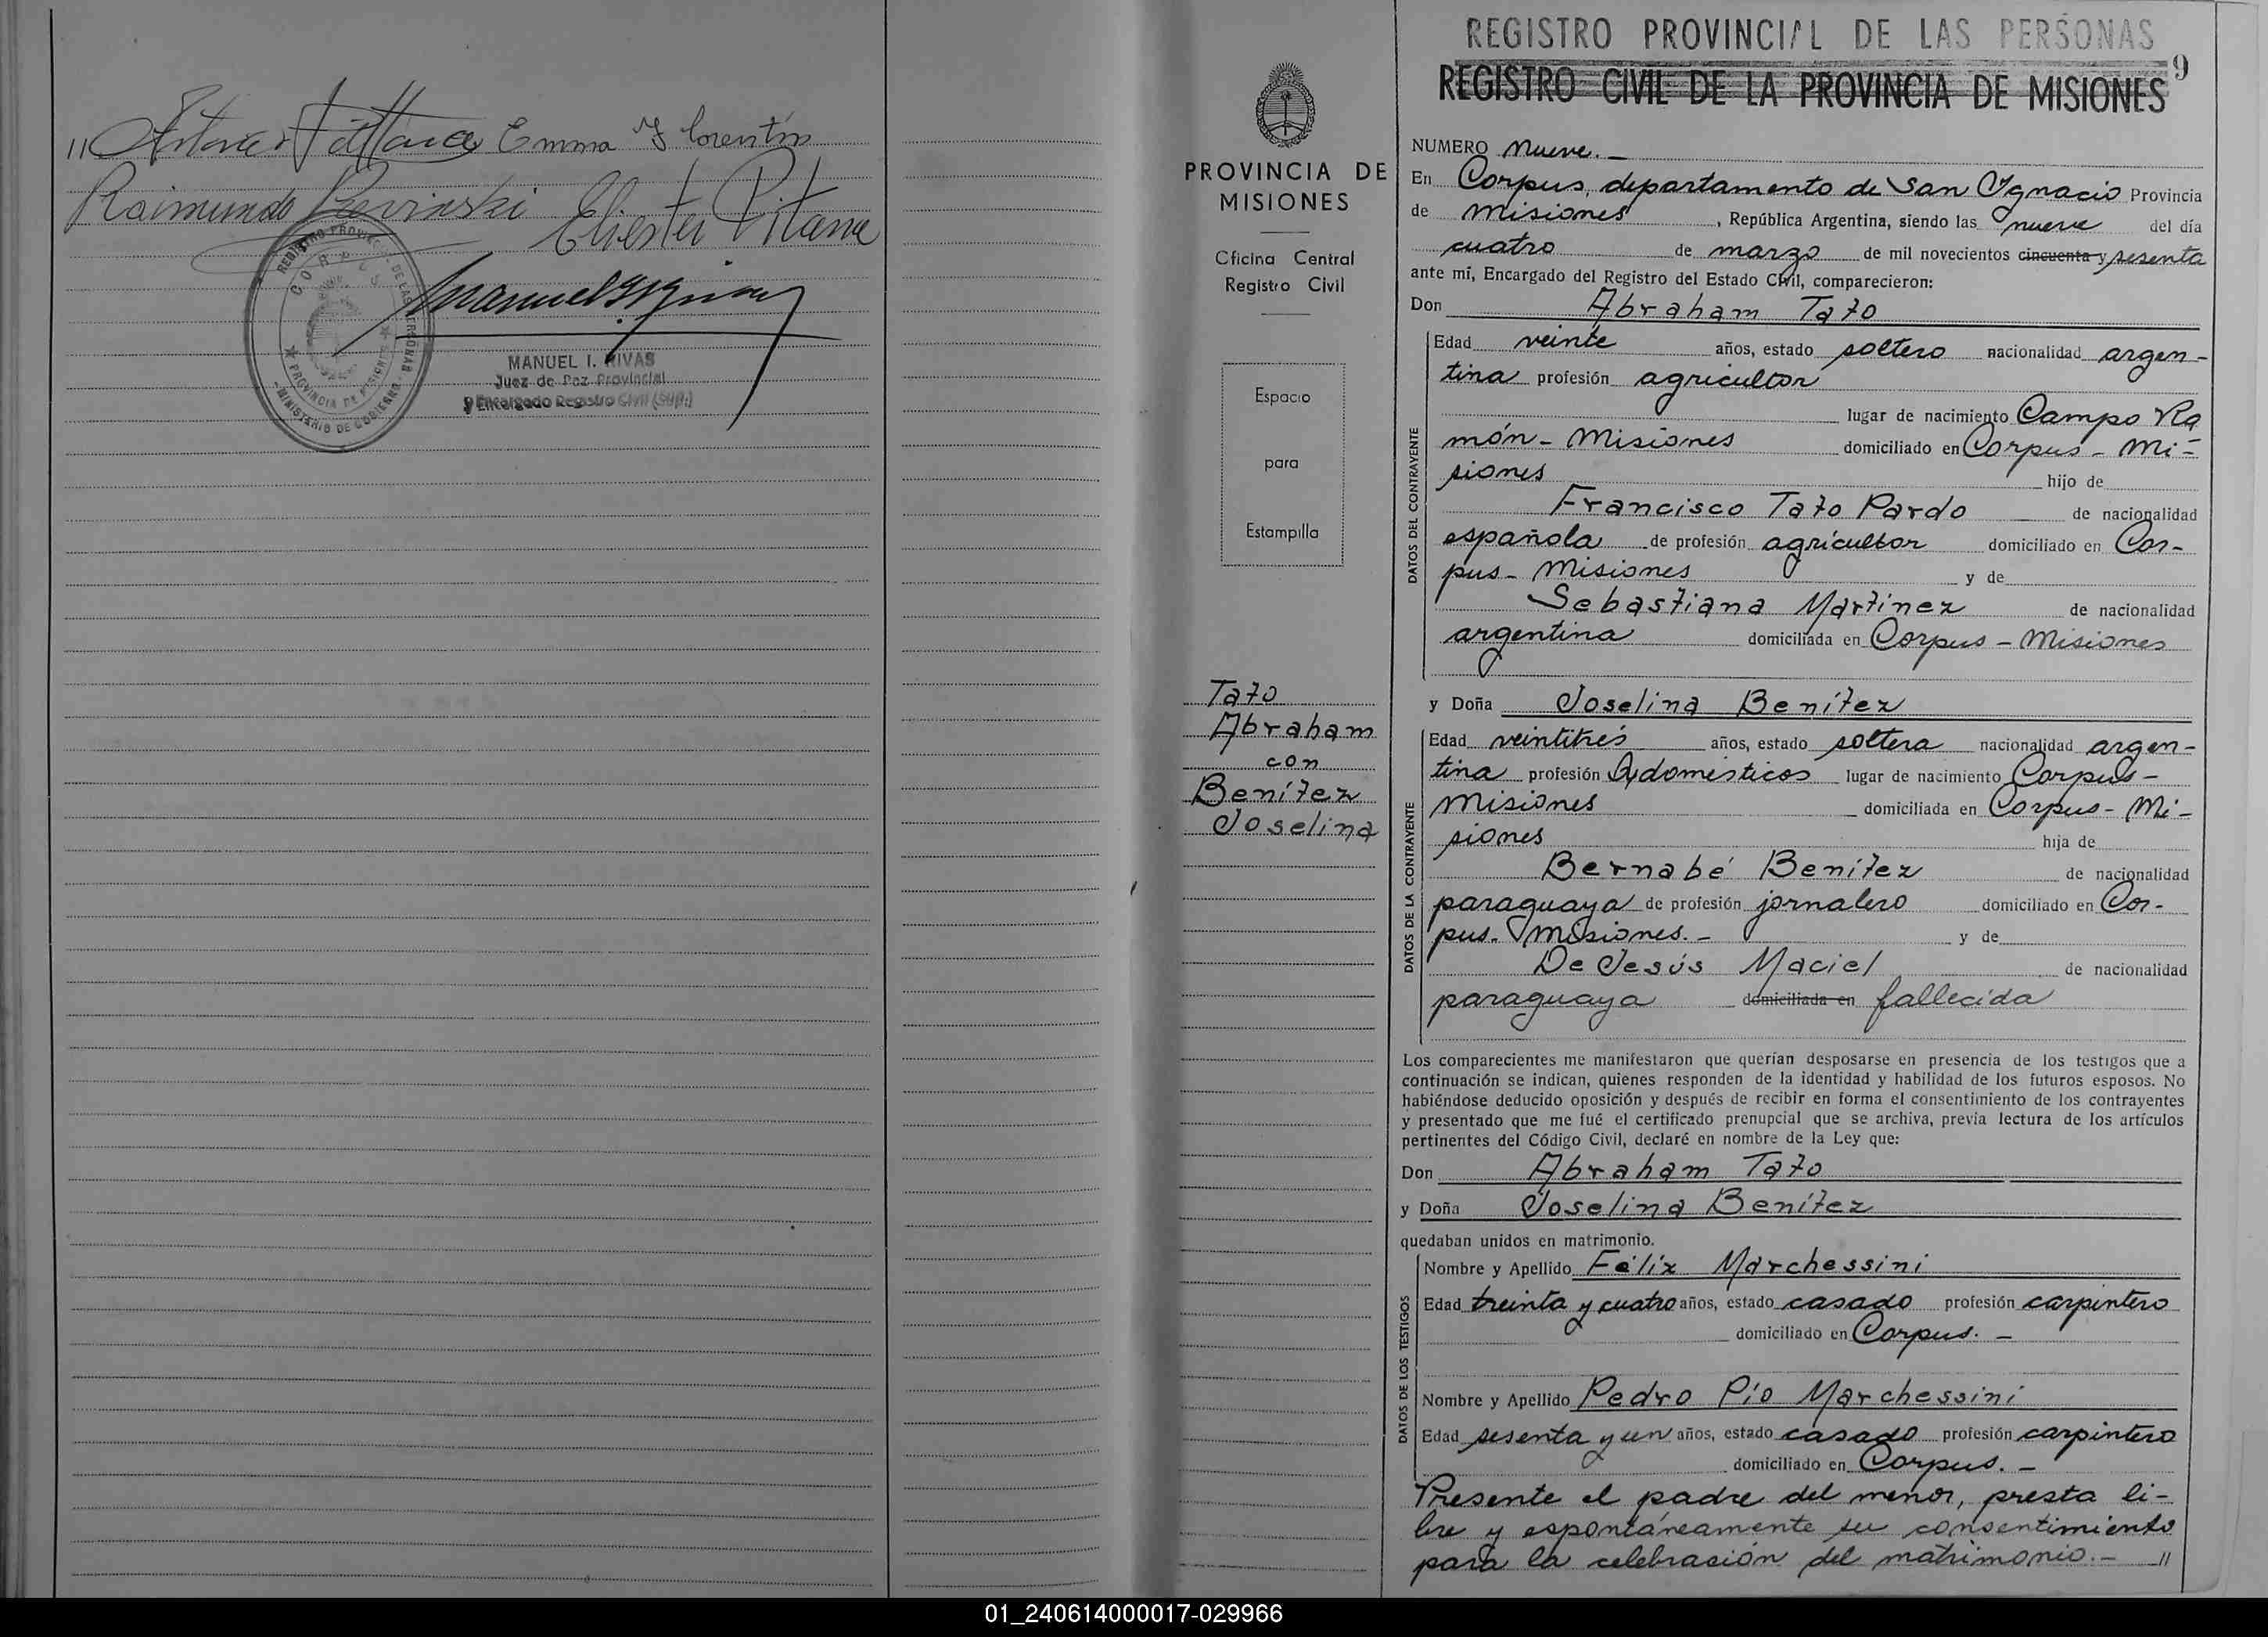 " Antonio Emma Florentín
Raimundo Chester Pitana
REGISTRO PROVINCIAL DE LAS PERSONAS
CORPUS
PROVINCIA DE MISIONES
MINISTERIO DE GOBIERNO
MANUEL I. RIVAS
Juez de Paz Provincial
y Encargado Registro Civil (Sup.)
PROVINCIA DE
MISIONES
Oficina Central
Registro Civil
Espacio
para
Estampilla
Tato
Abraham
con
Benítez
Joselina
REGISTRO PROVINCIAL DE LAS PERSONAS
REGISTRO CIVIL DE LA PROVINCIA DE MISIONES 9
NUMERO nueve.-
En Corpus, departamento de San Ignacio Provincia
de Misiones, República Argentina, siendo las nueve del día
cuatro de marzo de mil novecientos cincuenta y sesenta
ante mí, Encargado del Registro del Estado Civil, comparecieron:
Don Abraham Tato
DATOS DEL CONTRAYENTE
Edad veinte años, estado soltero nacionalidad argen-
tina profesión agricultor
lugar de nacimiento Campo Ra
món - Misiones domiciliado en Corpus - Mi-
siones hijo de
Francisco Tato Pardo de nacionalidad
española de profesión agricultor domiciliado en Cor-
pus - Misiones y de
Sebastiana Martinez de nacionalidad
argentina domiciliada en Corpus - Misiones
y Doña Joselina Benítez
DATOS DE LA CONTRAYENTE
Edad veintitrés años, estado soltera nacionalidad argen-
tina profesión Q/domésticos lugar de nacimiento Corpus -
Misiones domiciliada en Corpus - Mi-
siones hija de
Bernabé Benítez de nacionalidad
paraguaya de profesión jornalero domiciliado en Cor-
pus - Misiones.- y de
De Jesús Maciel de nacionalidad
paraguaya domiciliada en fallecida
Los comparecientes me manifestaron que querían desposarse en presencia de los testigos que a
continuación se indican, quienes responden de la identidad y habilidad de los futuros esposos. No
habiéndose deducido oposición y después de recibir en forma el consentimiento de los contrayentes
y presentado que me fué el certificado prenupcial que se archiva, previa lectura de los artículos
pertinentes del Código Civil, declaré en nombre de la Ley que:
Don Abraham Tato
y Doña Joselina Benítez
quedaban unidos en matrimonio.
DATOS DE LOS TESTIGOS
Nombre y Apellido Félix Marchessini
Edad treinta y cuatro años, estado casado profesión carpintero
domiciliado en Corpus. -
Nombre y Apellido Pedro Pío Marchessini
Edad sesenta y un años, estado casado profesión carpintero
domiciliado en Corpus. -
Presente el padre del menor, presta li-
bre y espontáneamente su consentimiento
para la celebración del matrimonio.- "
01_240614000017-029966